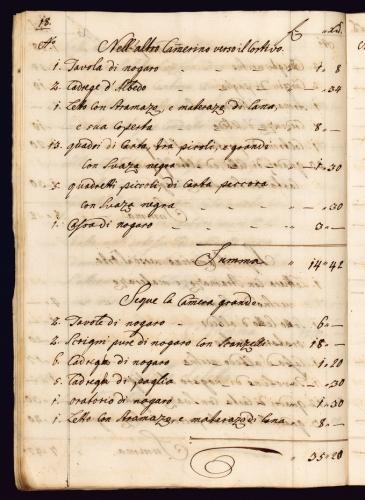 18.
Nell'altro Camerino verso il Cortivo.
1. Tavola di nogaro - - - 1 " 8
2. Cadrege d'Albedo - - - " 34
1. Letto con stramazo, e matarazo di lana,
e sua coperta - - - 8 " —
12. quadri di Carta, tra picoli, e grandi
con Suaza negra - - - 1 " 30
3. quadretti piccoli, di Carta peccora
con Suaza negra - - - " 30
1. Cassa di nogaro - - - 3 " —
Summa " 14 " 42
Segue la Camera grande
2. Tavole di nogaro - - " 6 " —
2. Scrigni pure di nogaro con Scanzelle " 18 " —
6. Cadrega di nogaro - - " 1 " 20
5. Cadrega di paglia - - " — " 30
1. oratorio di nogaro - - " 1 " 30
1. Letto con stramazo, e matarazo di lana " 8 " —
" 35 " 20